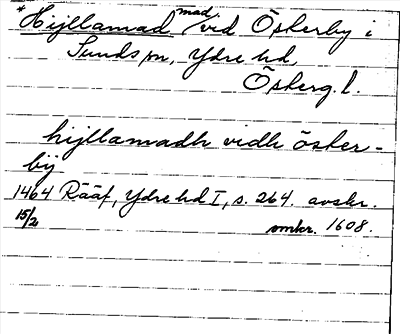 *Hijllamad mad vid Österby i
Sunds sn, Ydre hd,
Österg. l.
hijllamadh vidh öster-
bij
1464 Rääf, Ydre hd I, s. 264. avskr.
15/2 omkr. 1608.